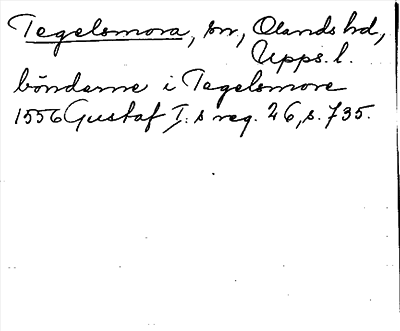 Tegelsmora, sn, Olands hd,
Upps. l.
bönderne i Tegelsmore
1556 Gustaf I:s reg. 26, s. 735.